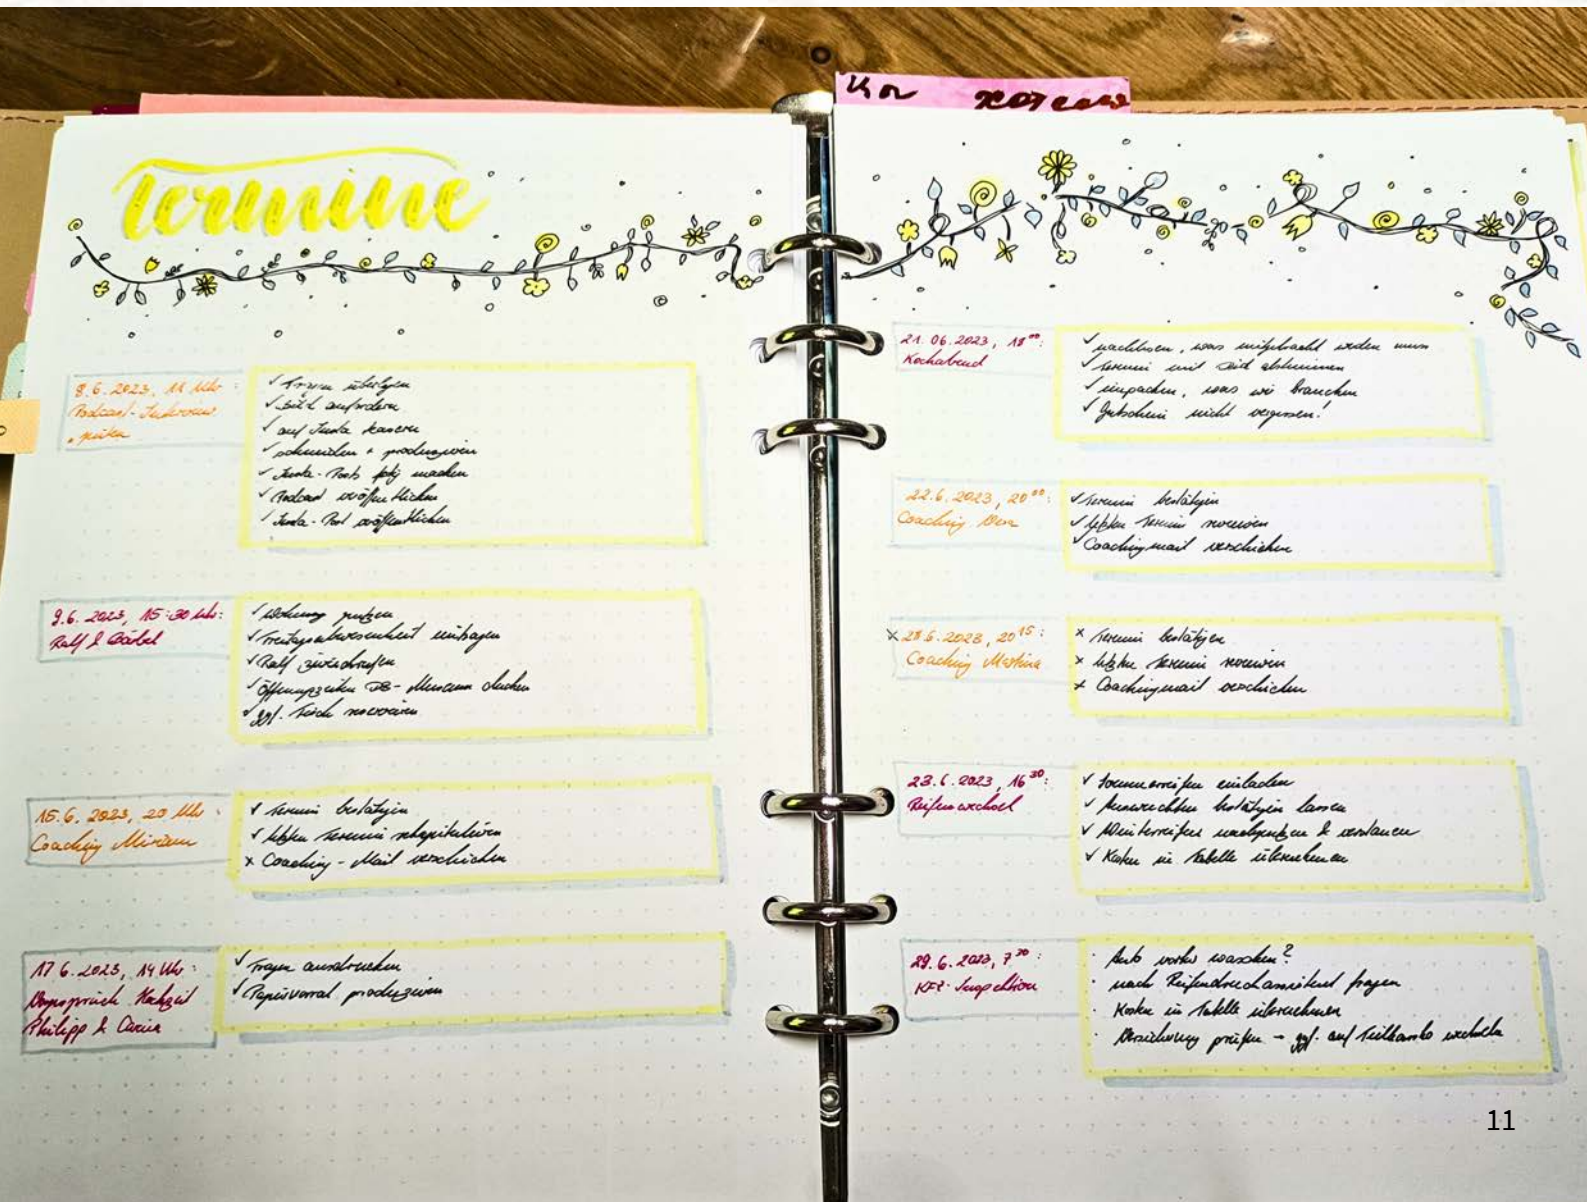 Termine
8.6.2023, 11 Uhr:
Podcast-Interview
✓ Fragen überlegen
✓ Bild anfordern
✓ auf Insta teasern
✓ schneiden + produzieren
✓ Insta-Posts fertig machen
✓ Podcast veröffentlichen
✓ Insta-Post veröffentlichen
9.6.2023, 15:30 Uhr:
Ralf & Bärbel
✓ Wohnung putzen
✓ Freitagsabwesenheit eintragen
✓ Ralf zurückrufen
✓ Öffnungszeiten Museum checken
✓ ggf. Tisch reservieren
15.6.2023, 20 Uhr:
Coaching Miriam
✓ Termin bestätigen
✓ letzten Termin rekapitulieren
x Coaching-Mail verschicken
17.6.2023, 14 Uhr:
Vorgespräch Hochzeit
Philipp & Carina
✓ Fragen ausdrucken
✓ Papiervorrat produzieren
21.06.2023, 18⁰⁰:
Kochabend
✓ nachlesen, was mitgebracht werden muss
✓ Termin mit abstimmen
✓ einpacken, was wir brauchen
✓ Gutschein nicht vergessen!
22.6.2023, 20⁰⁰:
Coaching Vera
✓ Termin bestätigen
✓ letzten Termin
✓ Coachingmail verschicken
x 28.6.2023, 20¹⁵:
Coaching Martina
x Termin bestätigen
x letzten Termin
x Coachingmail verschicken
23.6.2023, 16³⁰:
Reifenwechsel
✓ Sommerreifen einladen
✓ Auswuchten bestätigen lassen
✓ Winterreifen & verstauen
✓ Kosten in Tabelle übernehmen
29.6.2023, 7³⁰:
KFZ-Inspektion
· Auto vorher waschen?
· nach Reifendruckassistent fragen
· Kosten in Tabelle übernehmen
· Versicherung prüfen → ggf. auf Teilkasko wechseln
11